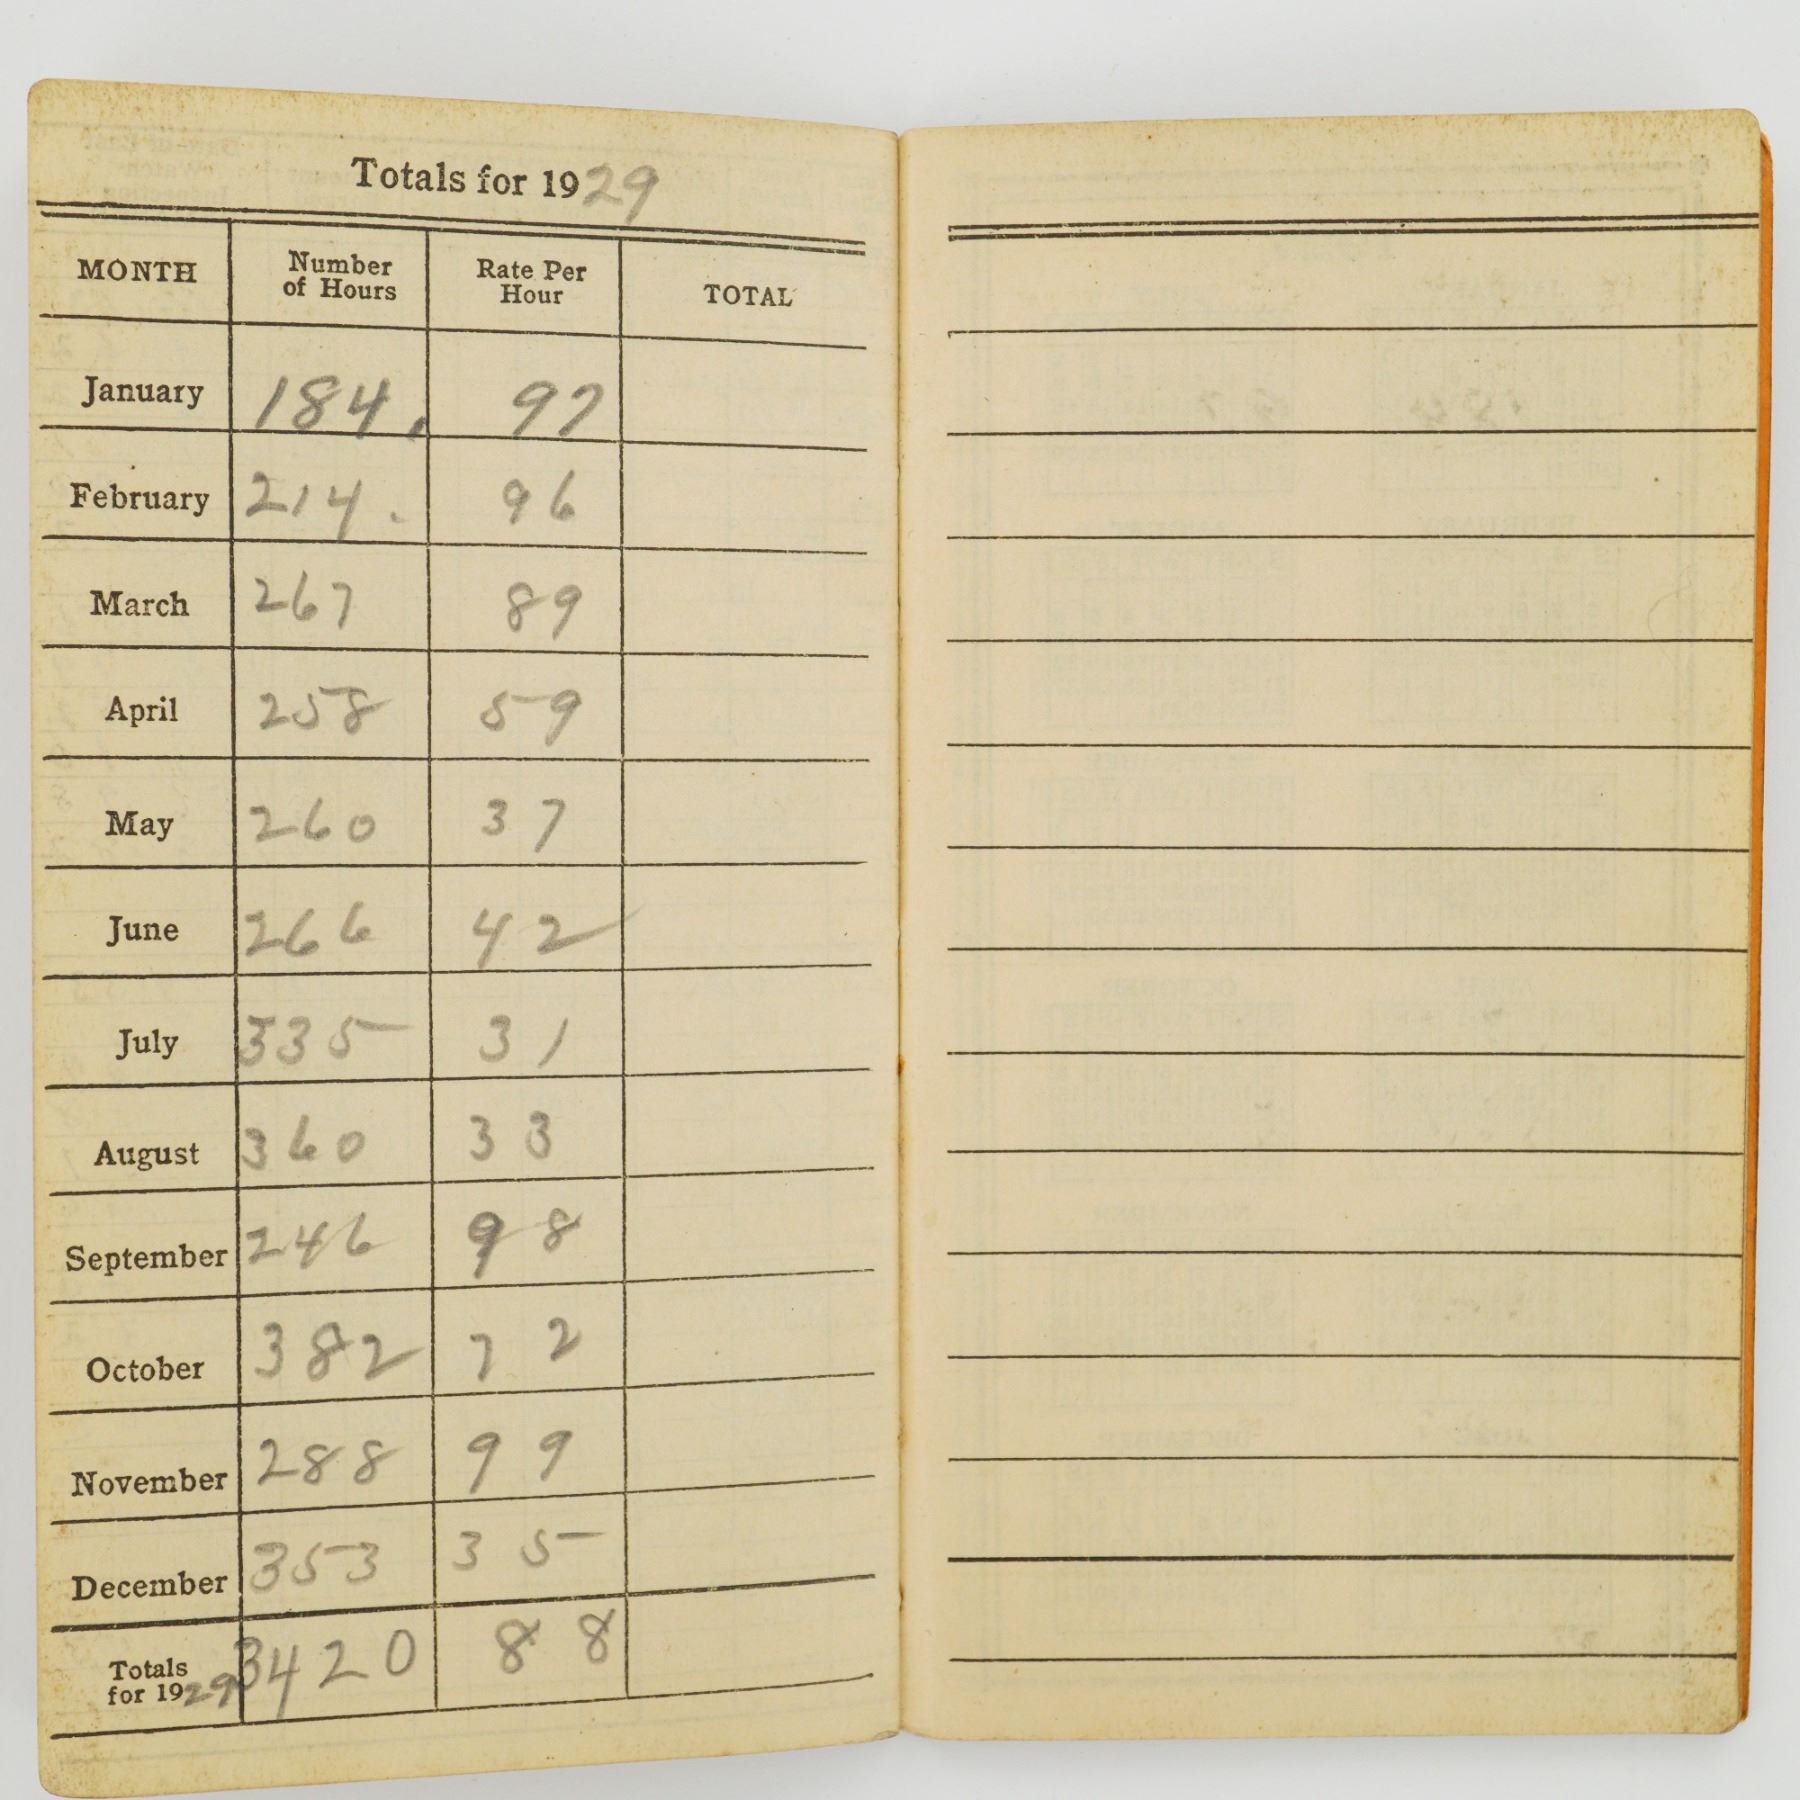 Totals for 1929
MONTH Number of Hours Rate Per Hour TOTAL
January 184. 97
February 214. 96
March 267 89
April 258 59
May 260 37
June 266 42
July 335 31
August 360 33
September 246 98
October 382 72
November 288 99
December 353 35
Totals for 1929 3420 88